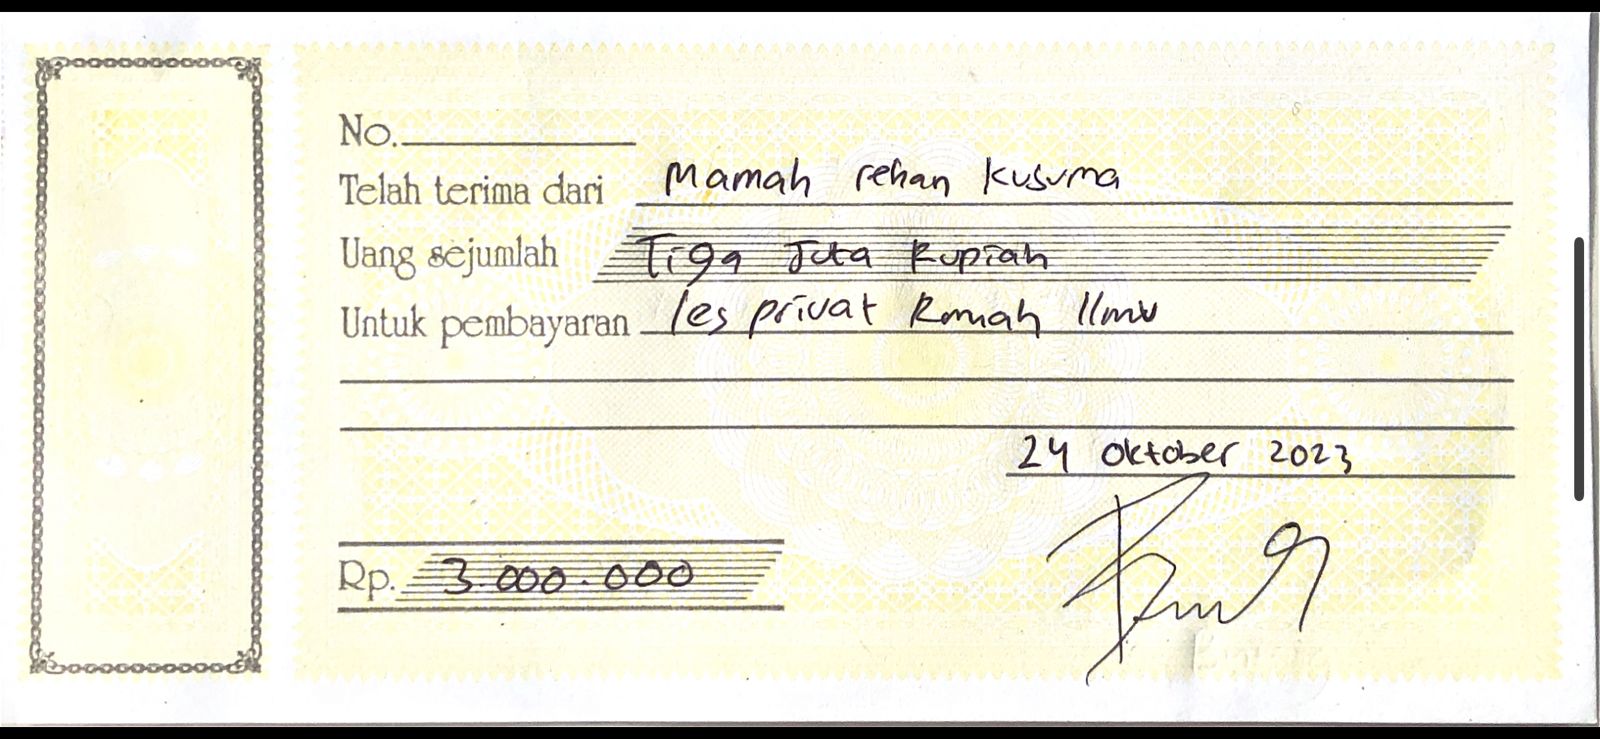 No.
Telah terima dari Mamah rehan kusuma
Uang sejumlah Tiga Juta Rupiah
Untuk pembayaran les privat Rumah Ilmu
24 Oktober 2023
Rp. 3.000.000